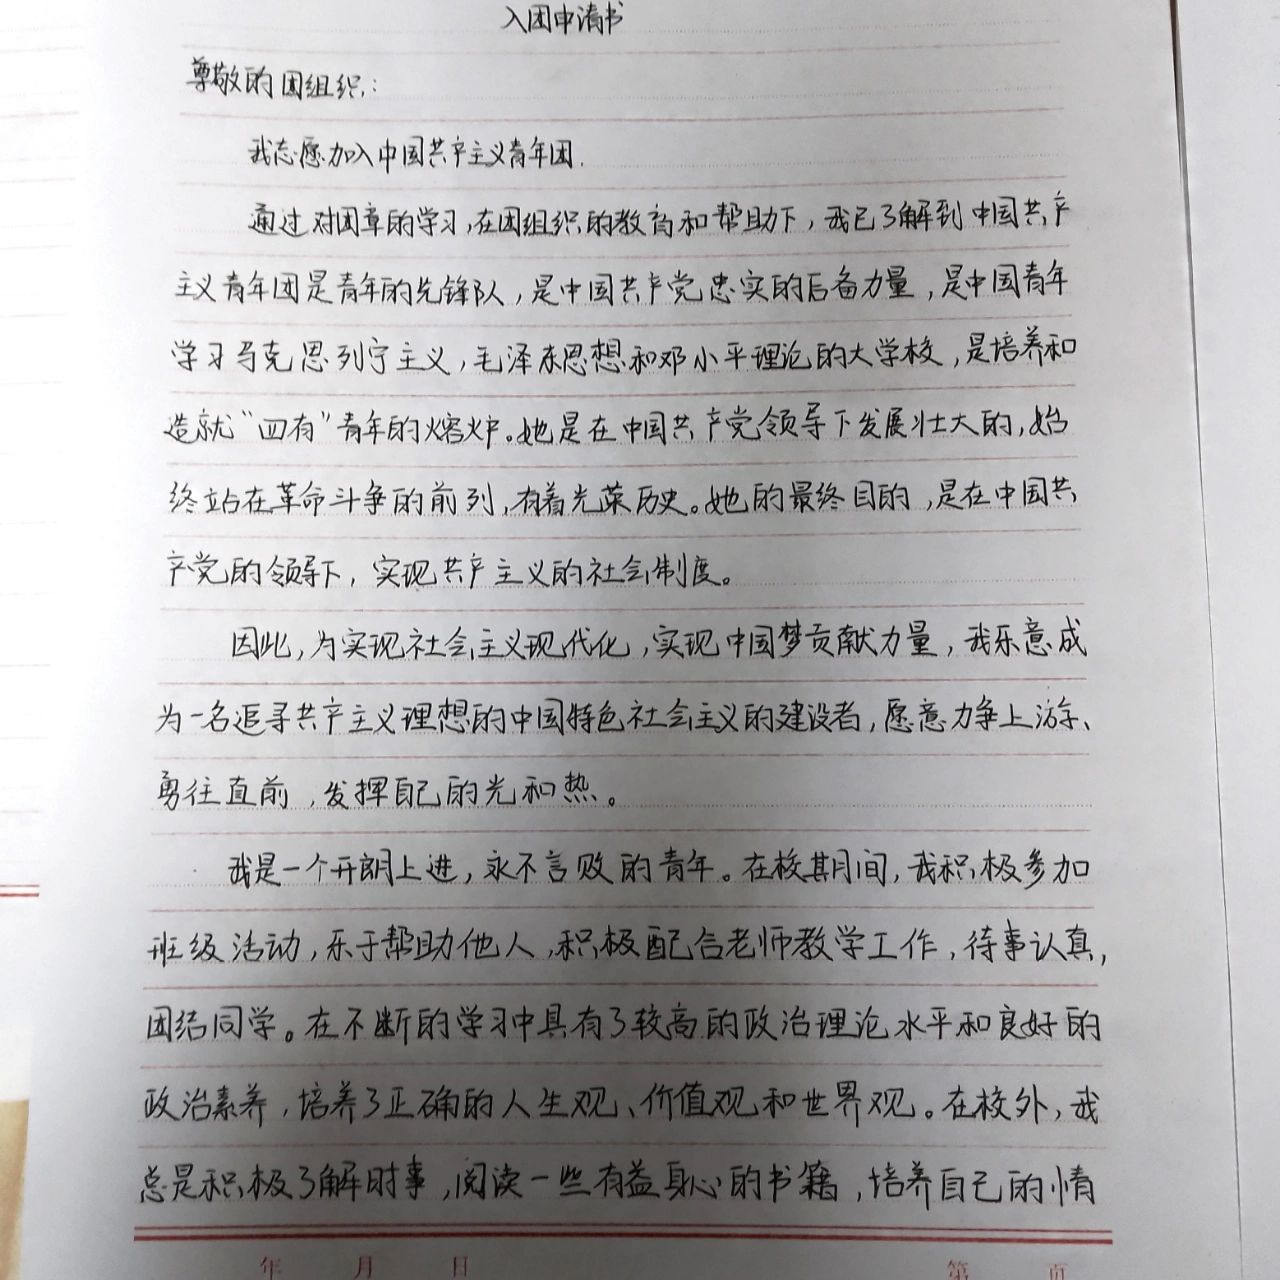 入团申请书
尊敬的团组织：
我志愿加入中国共产主义青年团．
通过对团章的学习，在团组织的教育和帮助下，我已了解到中国共产
主义青年团是青年的先锋队，是中国共产党忠实的后备力量，是中国青年
学习马克思列宁主义，毛泽东思想和邓小平理论的大学校，是培养和
造就“四有”青年的熔炉。她是在中国共产党领导下发展壮大的，始
终站在革命斗争的前列，有着光荣历史。她的最终目的，是在中国共
产党的领导下，实现共产主义的社会制度。
因此，为实现社会主义现代化，实现中国梦贡献力量，我乐意成
为一名追寻共产主义理想的中国特色社会主义的建设者，愿意力争上游、
勇往直前，发挥自己的光和热。
我是一个开朗上进，永不言败的青年。在校期间，我积极参加
班级活动，乐于帮助他人，积极配合老师教学工作，待事认真，
团结同学。在不断的学习中具有了较高的政治理论水平和良好的
政治素养，培养了正确的人生观、价值观和世界观。在校外，我
总是积极了解时事，阅读一些有益身心的书籍，培养自己的情
年 月 日 第 页